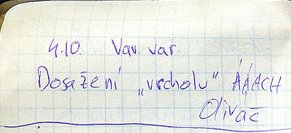 4.10. Var var
Dosažení „vrcholu“ ÁÁÁCH
Olivač